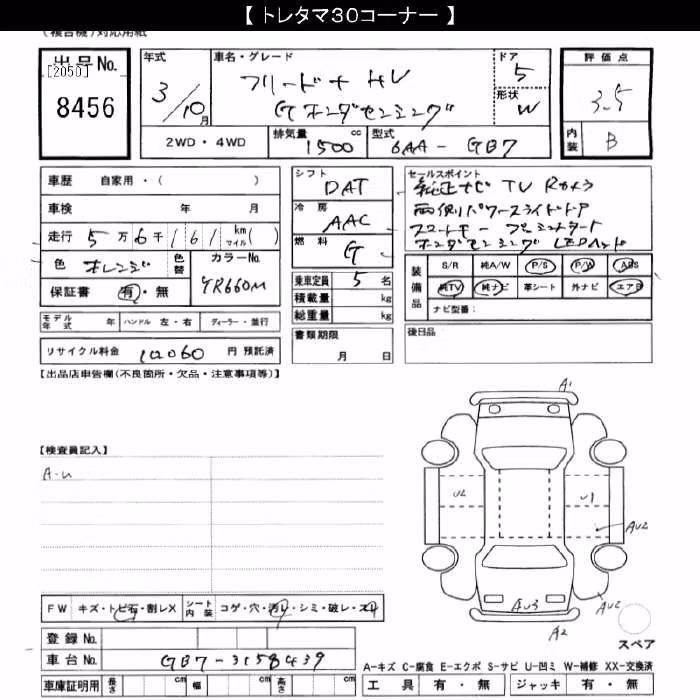 【 トレタマ30コーナー 】
(複合機)対応用紙
出品No.
[2050]
8456
年式
3/10月
車名・グレード
フリード+ HV
G ホンダセンシング
ドア
5
形状
W
評価点
3.5
内装 B
2WD・4WD 排気量 1500 cc 型式 6AA-GB7
車歴 自家用・( )
車検 年 月
走行 5万6千161 km マイル( )
色 オレンジ 色替 カラーNo. YR660M
保証書 有・無
シフト DAT
冷房 AAC
燃料 G
乗車定員 5 名
積載量 kg
総重量 kg
書類期限
月 日
セールスポイント
純正ナビ TV Rカメラ
両側パワースライドドア
スマートキー プッシュスタート
ホンダセンシング LEDヘッド
装備品
S/R 純A/W P/S P/W ABS
純TV 純ナビ 革シート 外ナビ エアB
ナビ型番:
後日品
モデル年式 年 ハンドル 左・右 ディーラー・並行
リサイクル料金 10060 円 預託済
【出品店申告欄(不良箇所・欠品・注意事項等)】
【検査員記入】
A-u
A1
U2
U1
AU2
AU3
AU2
A2
スペア
FW キズ・トビ石・割レX シート内装 コゲ・穴・汚レ・シミ・破レ・スレ
登録No.
車台No. GB7-3158439
車庫証明用 長さ cm 幅 cm 高さ cm
A-キズ C-腐食 E-エクボ S-サビ U-凹ミ W-補修 XX-交換済
工具 有・無 ジャッキ 有・無